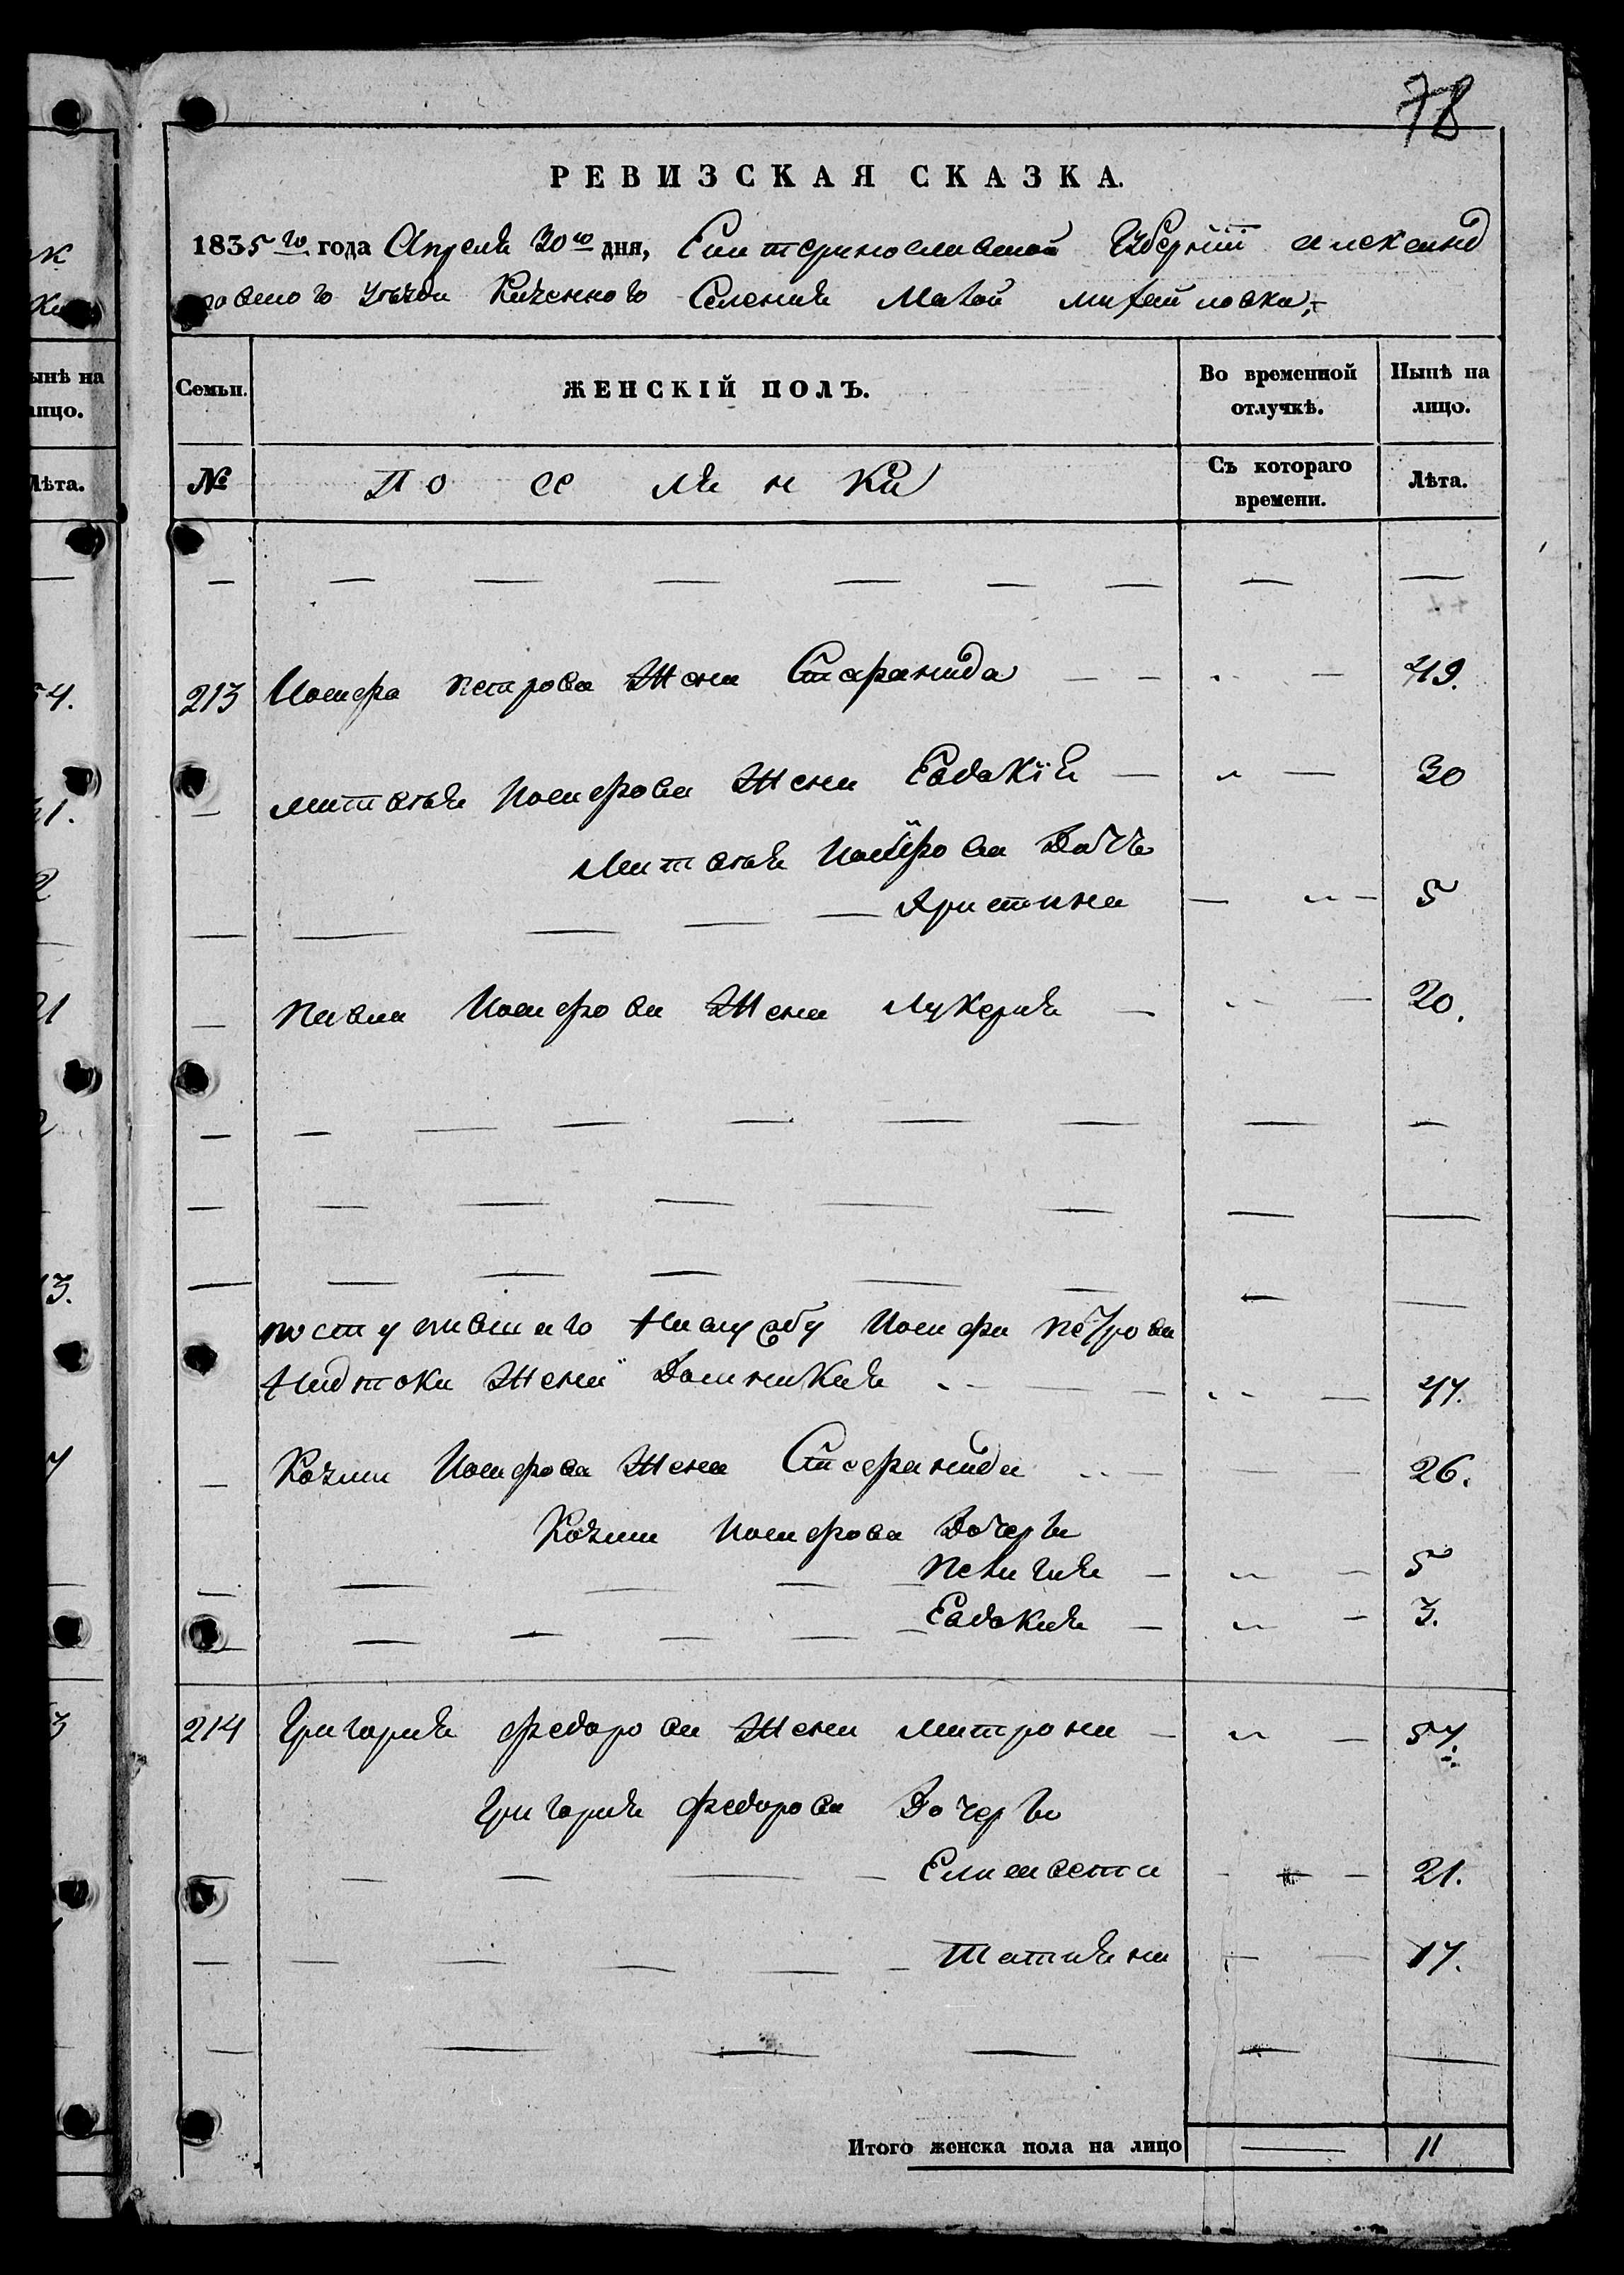 78
РЕВИЗСКАЯ СКАЗКА.
1835 го года Апреля 30 го дня, Екатеринославской Губернии Александ
ровского уезда Казенного Селения Малой Михайловки,
Семьи. ЖЕНСКІЙ ПОЛЪ. Во временной отлучкѣ. Нынѣ на лицо.
№ поселянки Съ котораго времени. Лѣта.
213 Иосифа петрова Жена Стефанида 49.
матвея Иосифова Жена Евдокія 30
Матвея Иосифова Дочь
Христина 5
павла Иосифова Жена лукерия 20.
поступившаго наслужбу Иосифа петрова
Жена Домникия 47.
Козми Иосифова Жена Стефанида 26.
Козми Иосифова Дочери
пелагия 5
Евдокия 3.
214 григория федорова Жена матрона 57.
григория федорова Дочери
Елисавета 21.
татияна 17.
Итого женска пола на лицо 11
ынѣ на
лицо.
Лѣта.